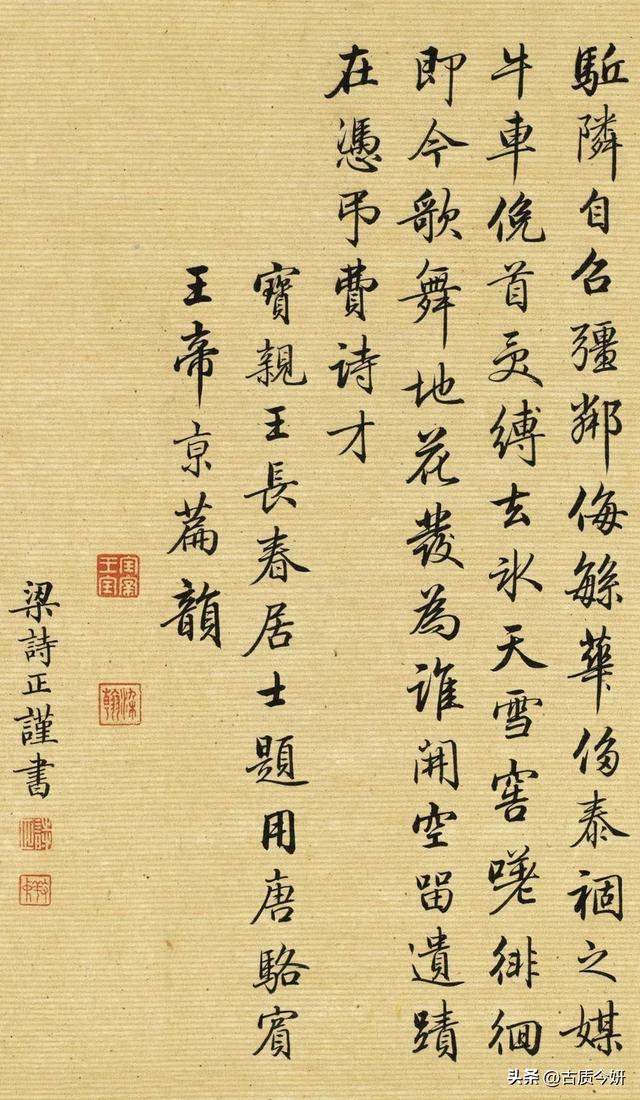 駈隣自召彊鄰侮緐華侈泰禍之媒
牛車俛首受縛去氷天雪窖嗟徘徊
即今歌舞地花發為誰開空留遺蹟
在憑弔費詩才
寶親王長春居士題用唐駱賓
王帝京篇韻
梁詩正謹書
头条 @古质今妍